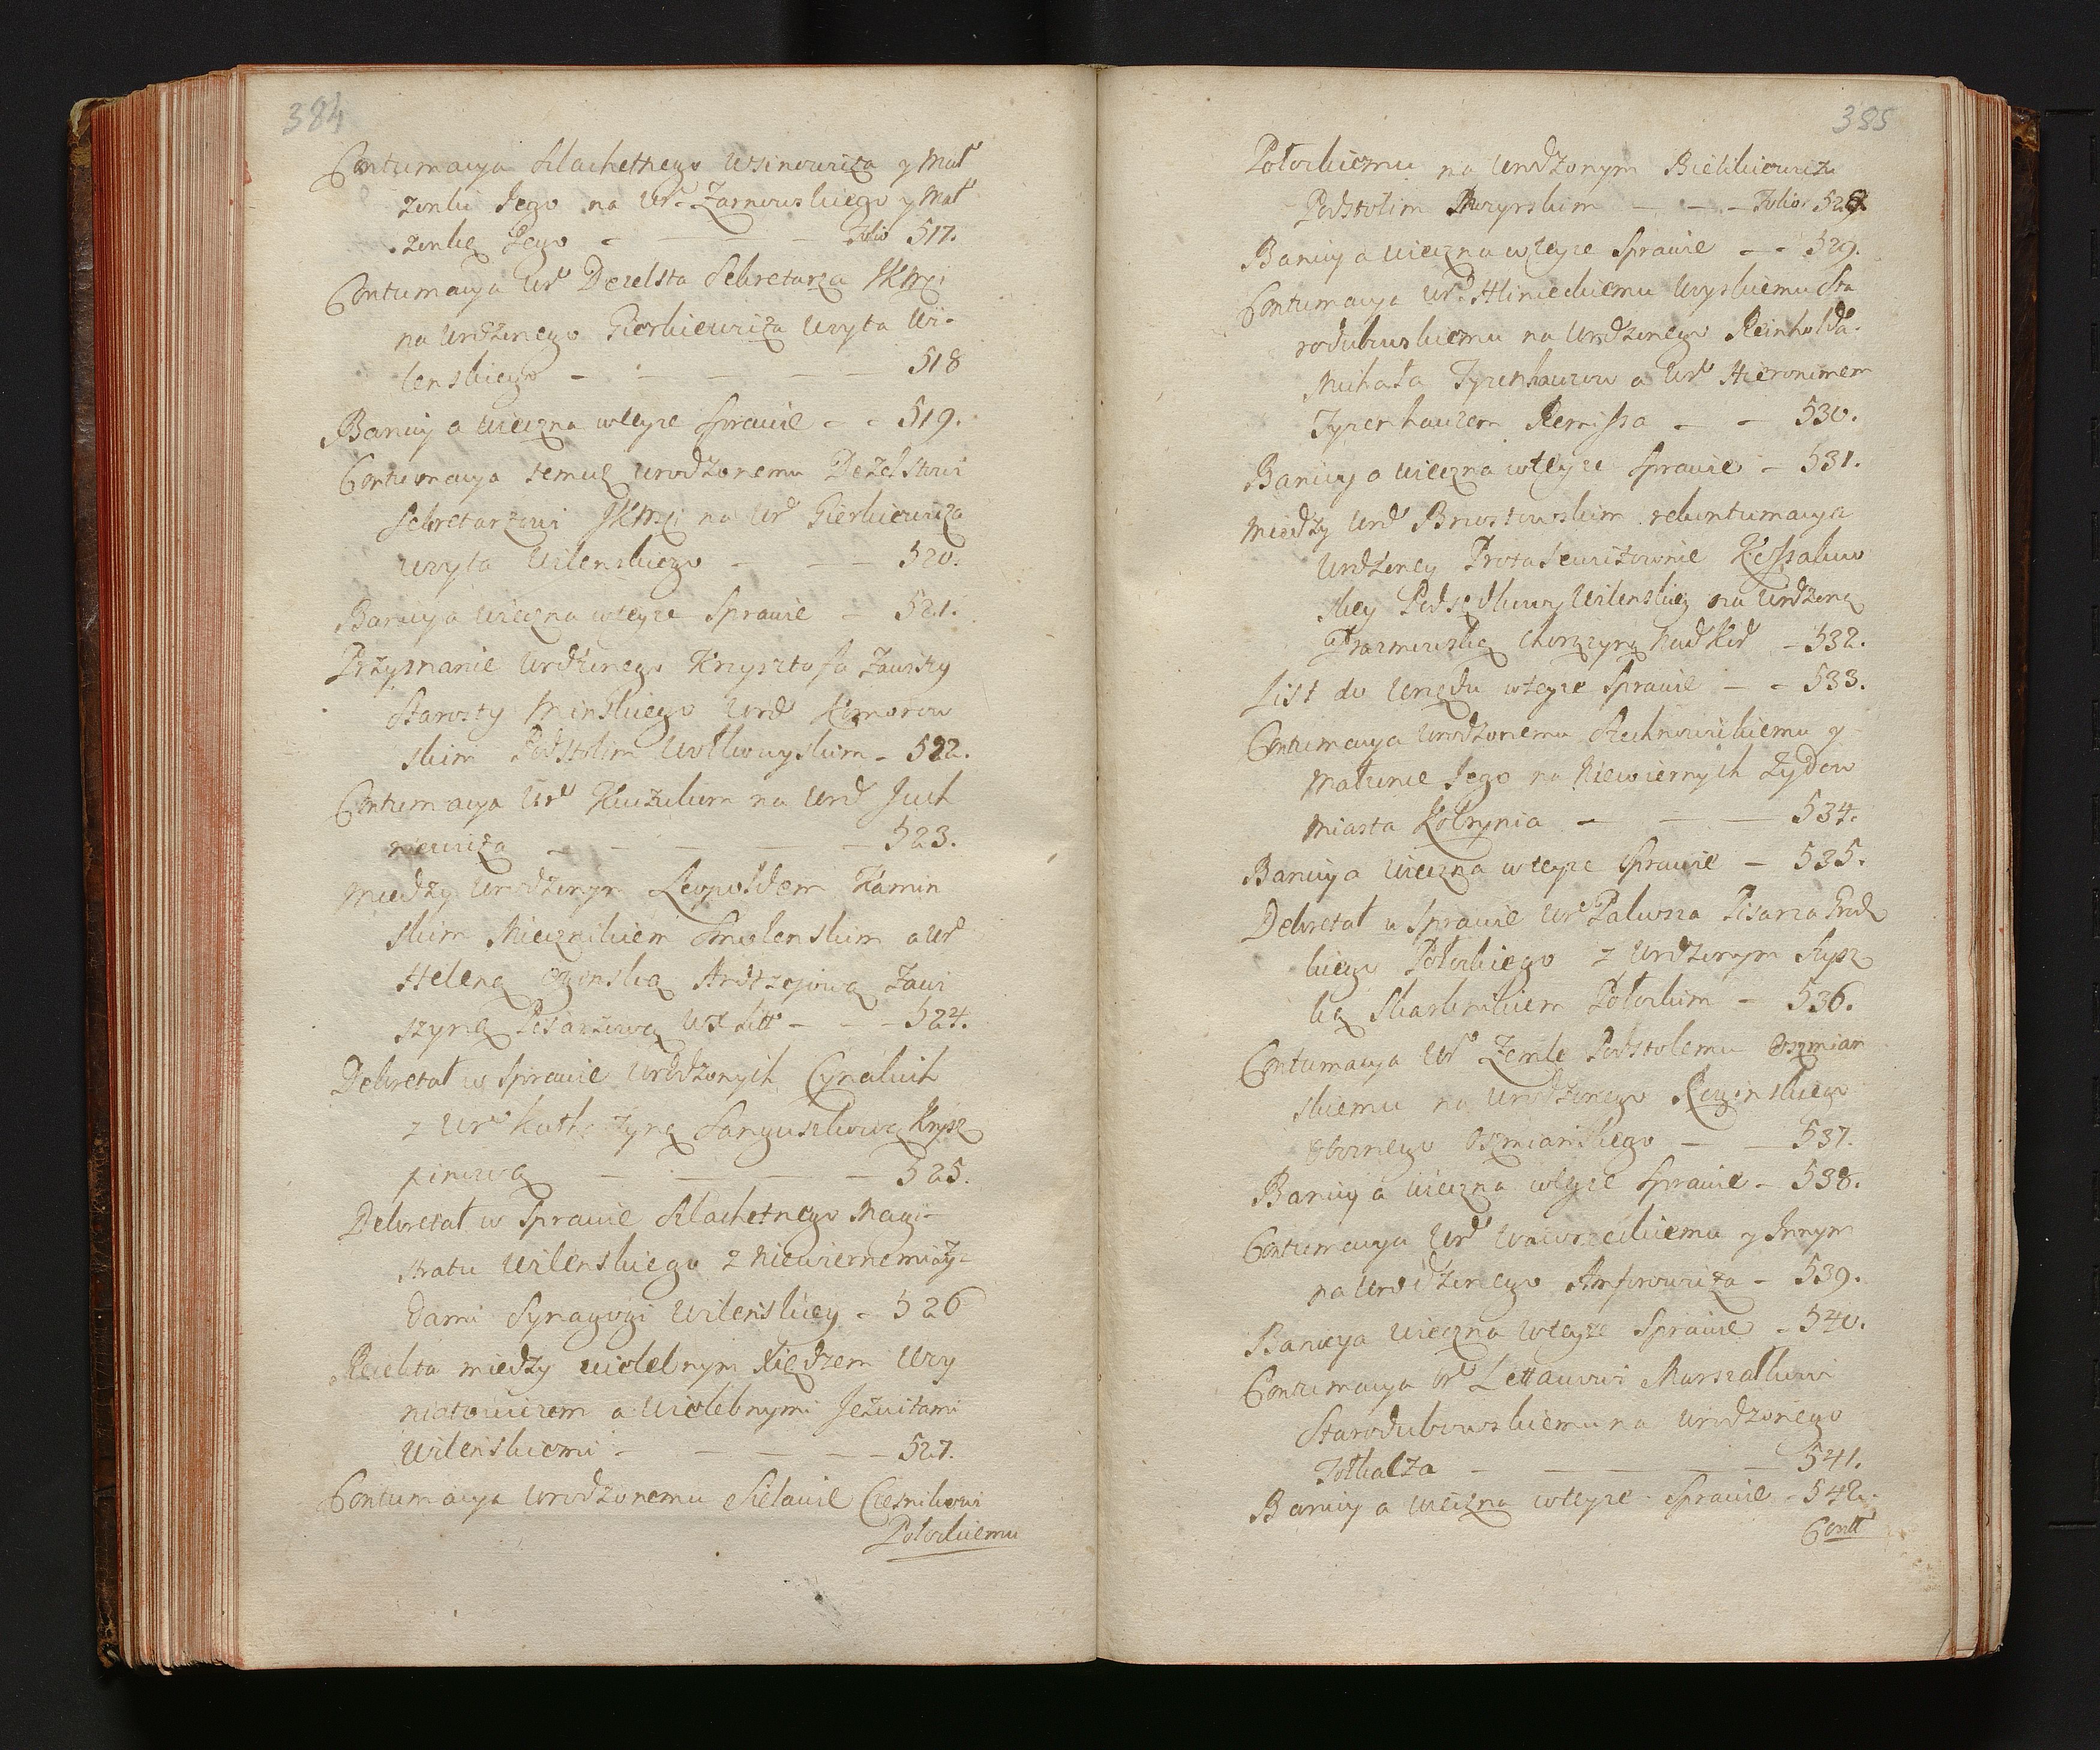 384
Contumacya Szlachetnego Usinowicza y Mał
żonki Jego na Urd Żarnowskiego y Mał
żonkę Jego - - - Folio 517.
Contumacya Urd Dezelsta Sekretarza JKMCi
na Urodzonego Gierkiewicza Woyta Wi-
lenskiego - - - - 518
Banicya wieczna wteyze Sprawie - - 519.
Contumacya temuz urodzonemu Dezelstowi
Sekretarzowi JKMCi na Urd Gierkiewicza
woyta Wilenskiego - - - 520.
Banicya wieczna wteyze Sprawie - 521.
Przyznanie Urodzonego Krzysztofa Zawiszy
Starosty Minskiego Urod Komorow
skim Podstolim Wołkowyskim - 522.
Contumacya Urd Kuczukom na Urod Juch
niewicza - - - - - 523.
Między Urodzonym Leopoldem Kamin
skim Miecznikiem Smolenskim a Urd
Heleną Oginską Andrzejową Zawi
szyną Pisarzową WXLitt - - - 524.
Dekretał w Sprawie Urodzonych Cynakich
z Urd Katarzyną Sanguszkową Krysz
pinową - - - - - 525.
Dekretał w Sprawie Szlachetnego Magi-
stratu Wilenskiego z Niewiernemi Ży-
dami Synagogi Wilenskiey - 526
Reiekta miedzy wielebnym Xiędzem Woy
niatowiczem a Wielebnymi Jezuitami
Wilenskiemi - - - - 527.
Contumacya Urodzonemu Sielawie Czesnikowi
Połockiemu
385
Połockiemu na Urodzonym Bielikiewiczu
Podstolim Mozyrskim - - - Folio 528.
Banicya wieczna wteyze Sprawie - - 529.
Contumacya Urd Hlinieckiemu Woyskiemu Sta
rodubowskiemu na Urodzonego Reinholda
Michała Tyzenhauzow a Urd Hieronimem
Tyzenhauzem Remissa - - 530.
Banicya wieczna wteyze Sprawie - 531.
Miedzy Urd Brzostowskim rekontumacya
Urodzoney Protasewiczownie Kossakow
skiey Podsędkowey Wilenskiey na Urodzoną
Prazmowską Chorązyną Nad Lid - 532.
List do Urzędu wteyze Sprawie - - 533.
Contumacya Urodzonemu Stechnowickiemu y
Małżonce Jego na Niewiernych Żydow
Miasta Kobrynia - - - 534.
Banicya wieczna wteyze Sprawie - 535.
Dekretał w Sprawie Urd Pakosza Pisarza Grodz
kiego Połockiego z Urodzonym Rypz
ką Skarbnikiem Połockim - 536.
Contumacya Urd Zenk Podstolemu Oszmian
skiemu na Urodzonego Reginskiego
Oboznego Oszmianskiego - - 537.
Banicya wieczna wteyze Sprawie - 538.
Contumacya Urd Wawrzeckiemu y Innym
na Urodzonego Anforowicza - 539.
Banicya wieczna wteyze Sprawie - 540.
Contumacya Urd Lettawowi Marszałkowi
Starodubowskiemu na Urodzonego
Tołkacza - - - - 541.
Banicya wieczna wteyze Sprawie - 542.
Contt